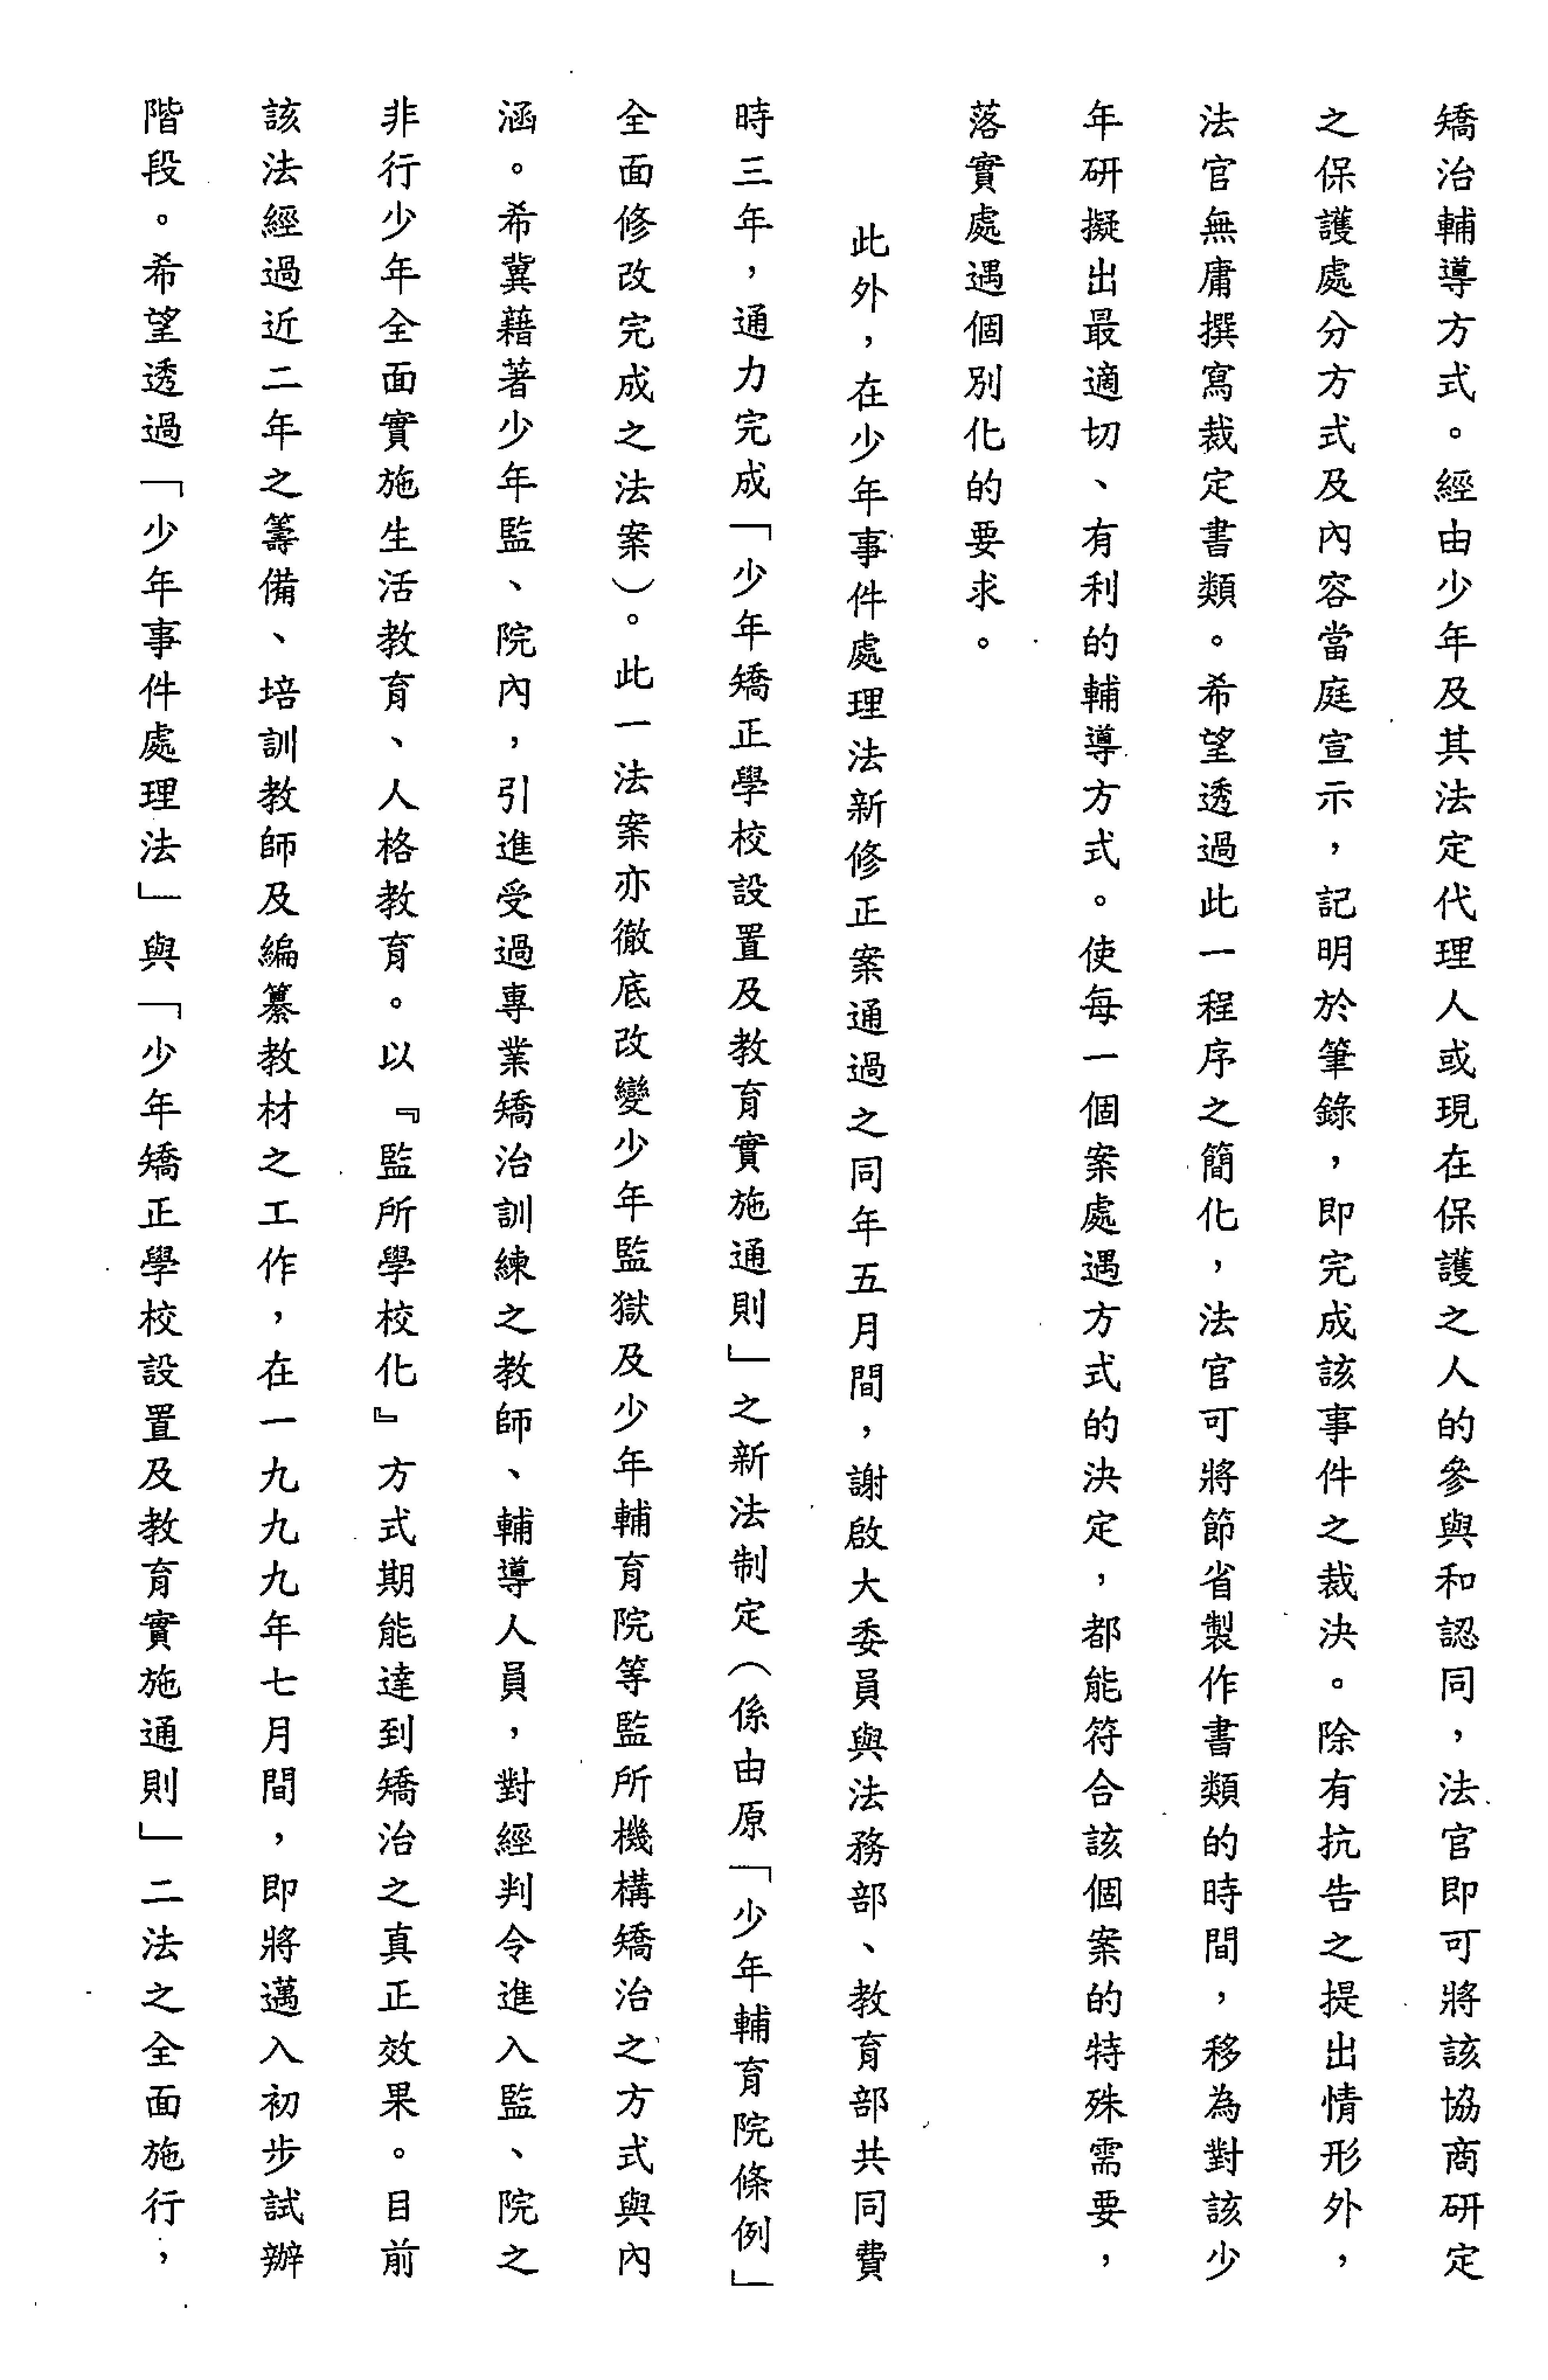 矯治輔導方式。經由少年及其法定代理人或現在保護之人的參與和認同，法官即可將該協商研定
之保護處分方式及內容當庭宣示，記明於筆錄，即完成該事件之裁決。除有抗告之提出情形外，
法官無庸撰寫裁定書類。希望透過此一程序之簡化，法官可將節省製作書類的時間，移為對該少
年研擬出最適切、有利的輔導方式。使每一個案處遇方式的決定，都能符合該個案的特殊需要，
落實處遇個別化的要求。
此外，在少年事件處理法新修正案通過之同年五月間，謝啟大委員與法務部、教育部共同費
時三年，通力完成「少年矯正學校設置及教育實施通則」之新法制定（係由原「少年輔育院條例」
全面修改完成之法案）。此一法案亦徹底改變少年監獄及少年輔育院等監所機構矯治之方式與內
涵。希冀藉著少年監、院內，引進受過專業矯治訓練之教師、輔導人員，對經判令進入監、院之
非行少年全面實施生活教育、人格教育。以『監所學校化』方式期能達到矯治之真正效果。目前
該法經過近二年之籌備、培訓教師及編纂教材之工作，在一九九九年七月間，即將邁入初步試辦
階段。希望透過「少年事件處理法」與「少年矯正學校設置及教育實施通則」二法之全面施行，